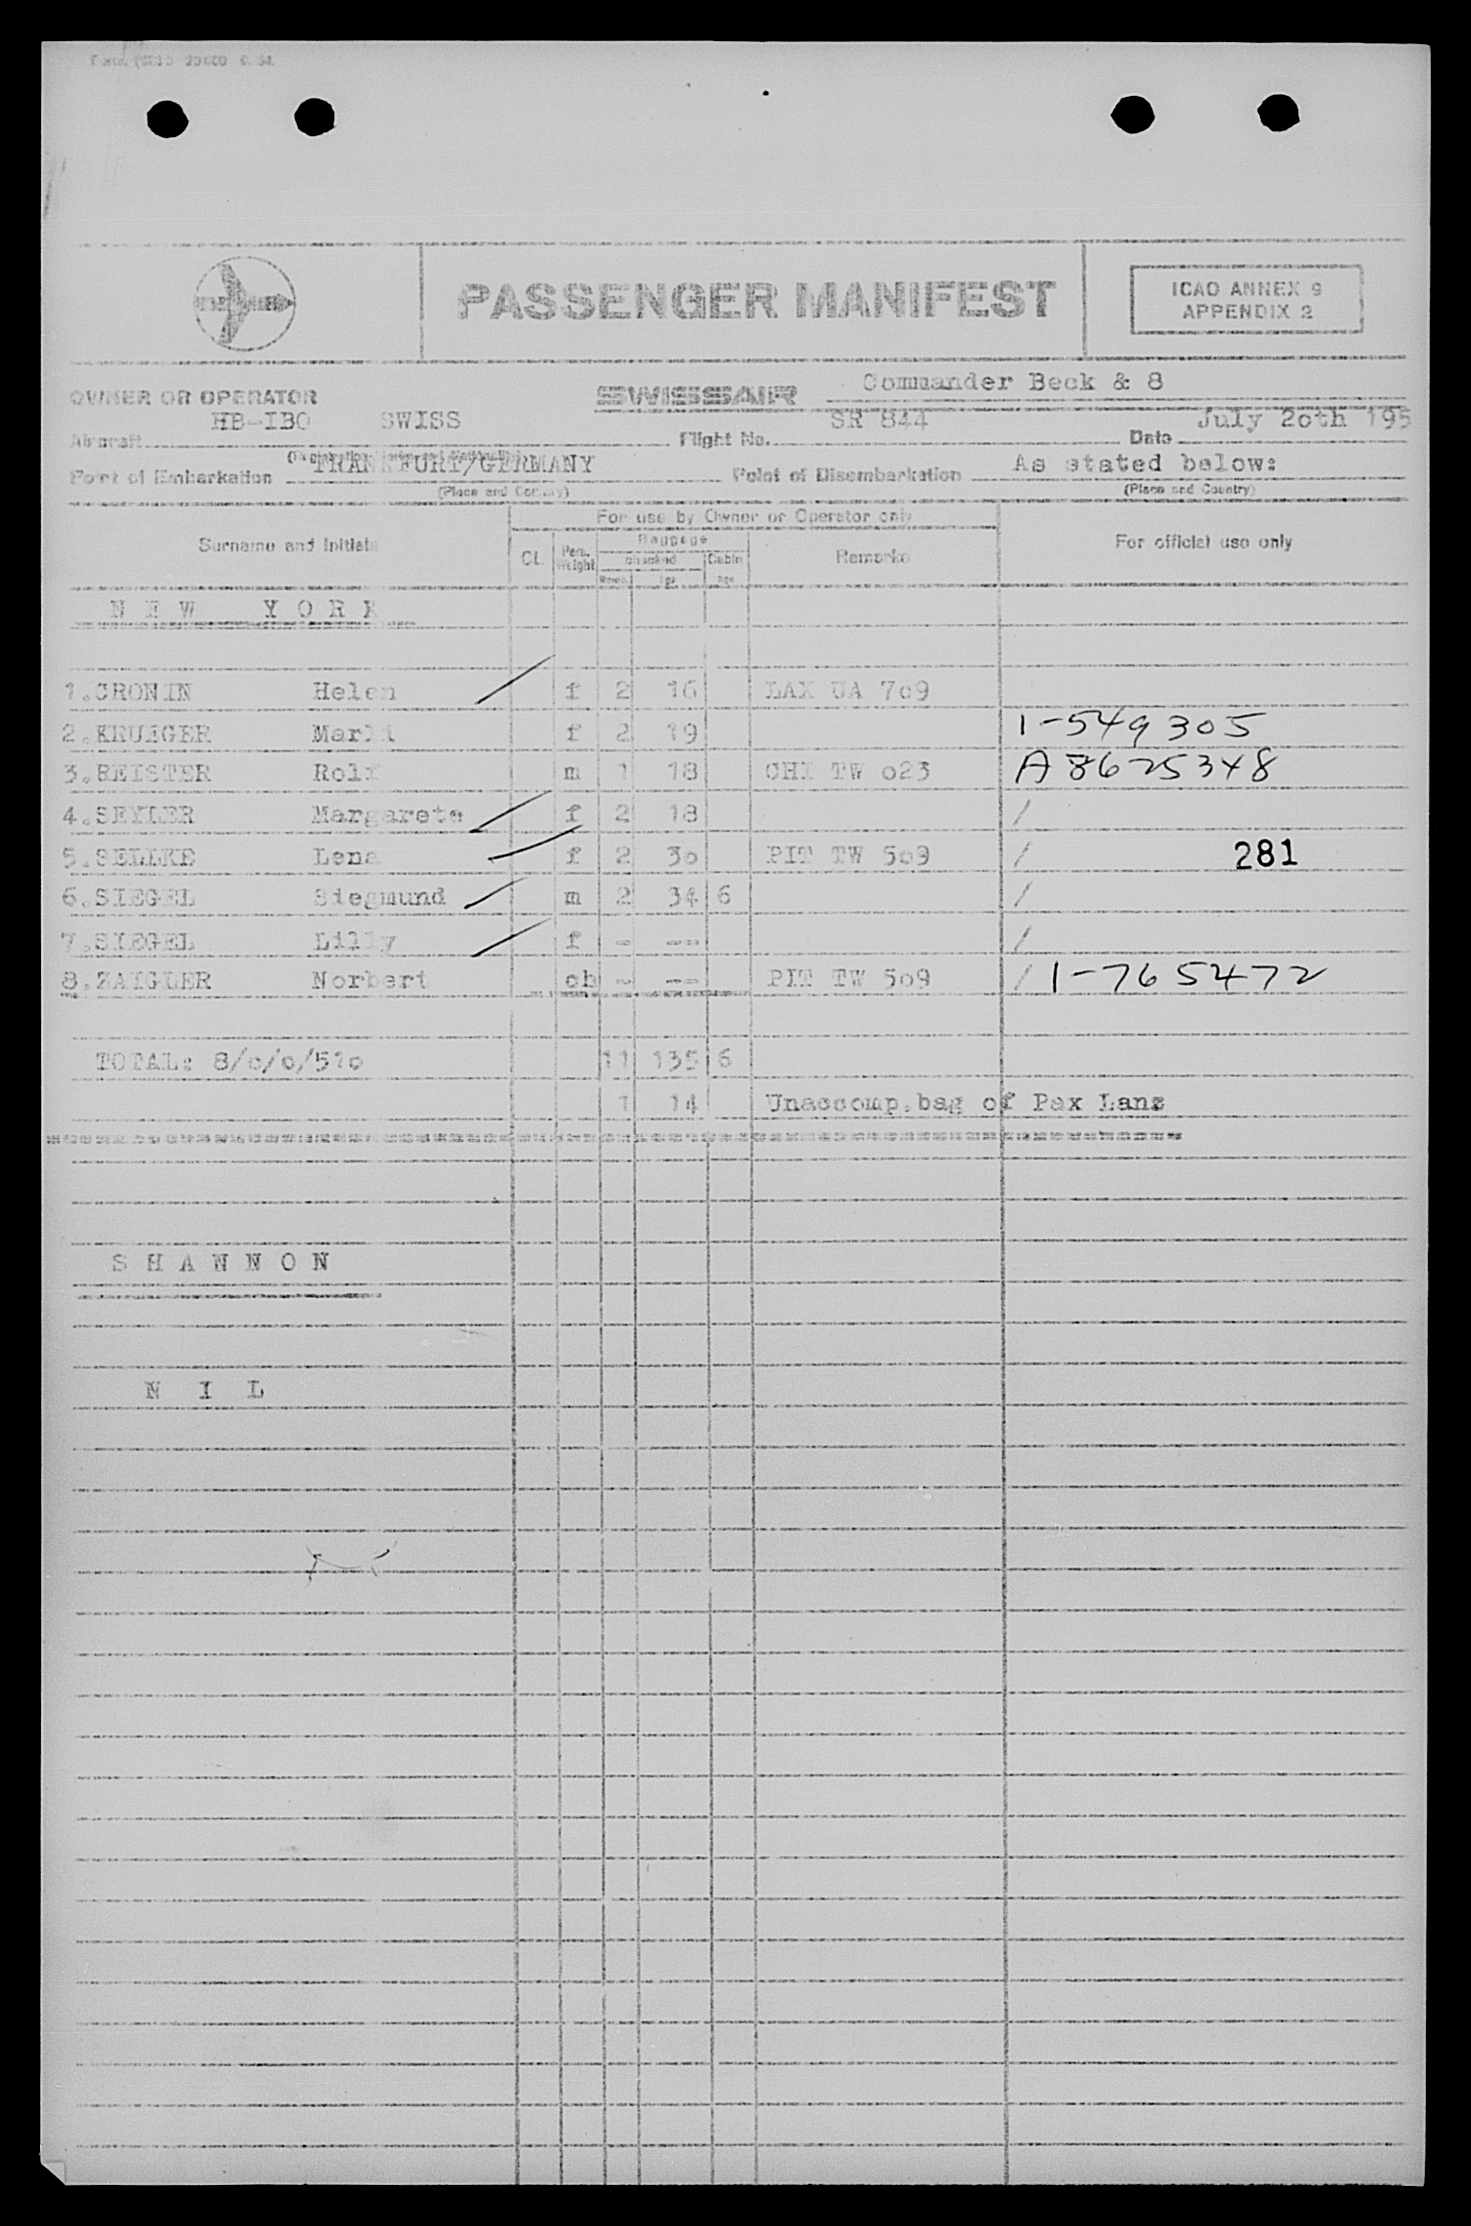 PASSENGER MANIFEST
ICAO ANNEX 9
APPENDIX 2
OWNER OR OPERATOR SWISSAIR Commander Beck & 8
Aircraft HB-IBO SWISS Flight No. SR 844 Date July 2oth 195
Point of Embarkation FRANKFURT/GERMANY Point of Disembarkation As stated below:
(Place and Country) (Place and Country)
For use by Owner or Operator only
Surname and Initials Cl. Pers. Weight Baggage checked Cabin Remarks For official use only
N E W Y O R K
1.CRONIN Helen f 2 16 LAX UA 7o9
2.KRUEGER Marli f 2 19 1-549305
3.REISTER Rolf m 1 18 CHI TW o23 A8625348
4.SEYLER Margarete f 2 18 /
5.SELLKE Lena f 2 3o PIT TW 5o9 / 281
6.SIEGEL Siegmund m 2 34 6 /
7.SIEGEL Lilly f - -- /
8.ZAIGLER Norbert ch - -- PIT TW 5o9 / 1-765472
TOTAL: 8/o/o/51o 11 135 6
1 14 Unaccomp.bag of Pax Lanz
S H A N N O N
N I L